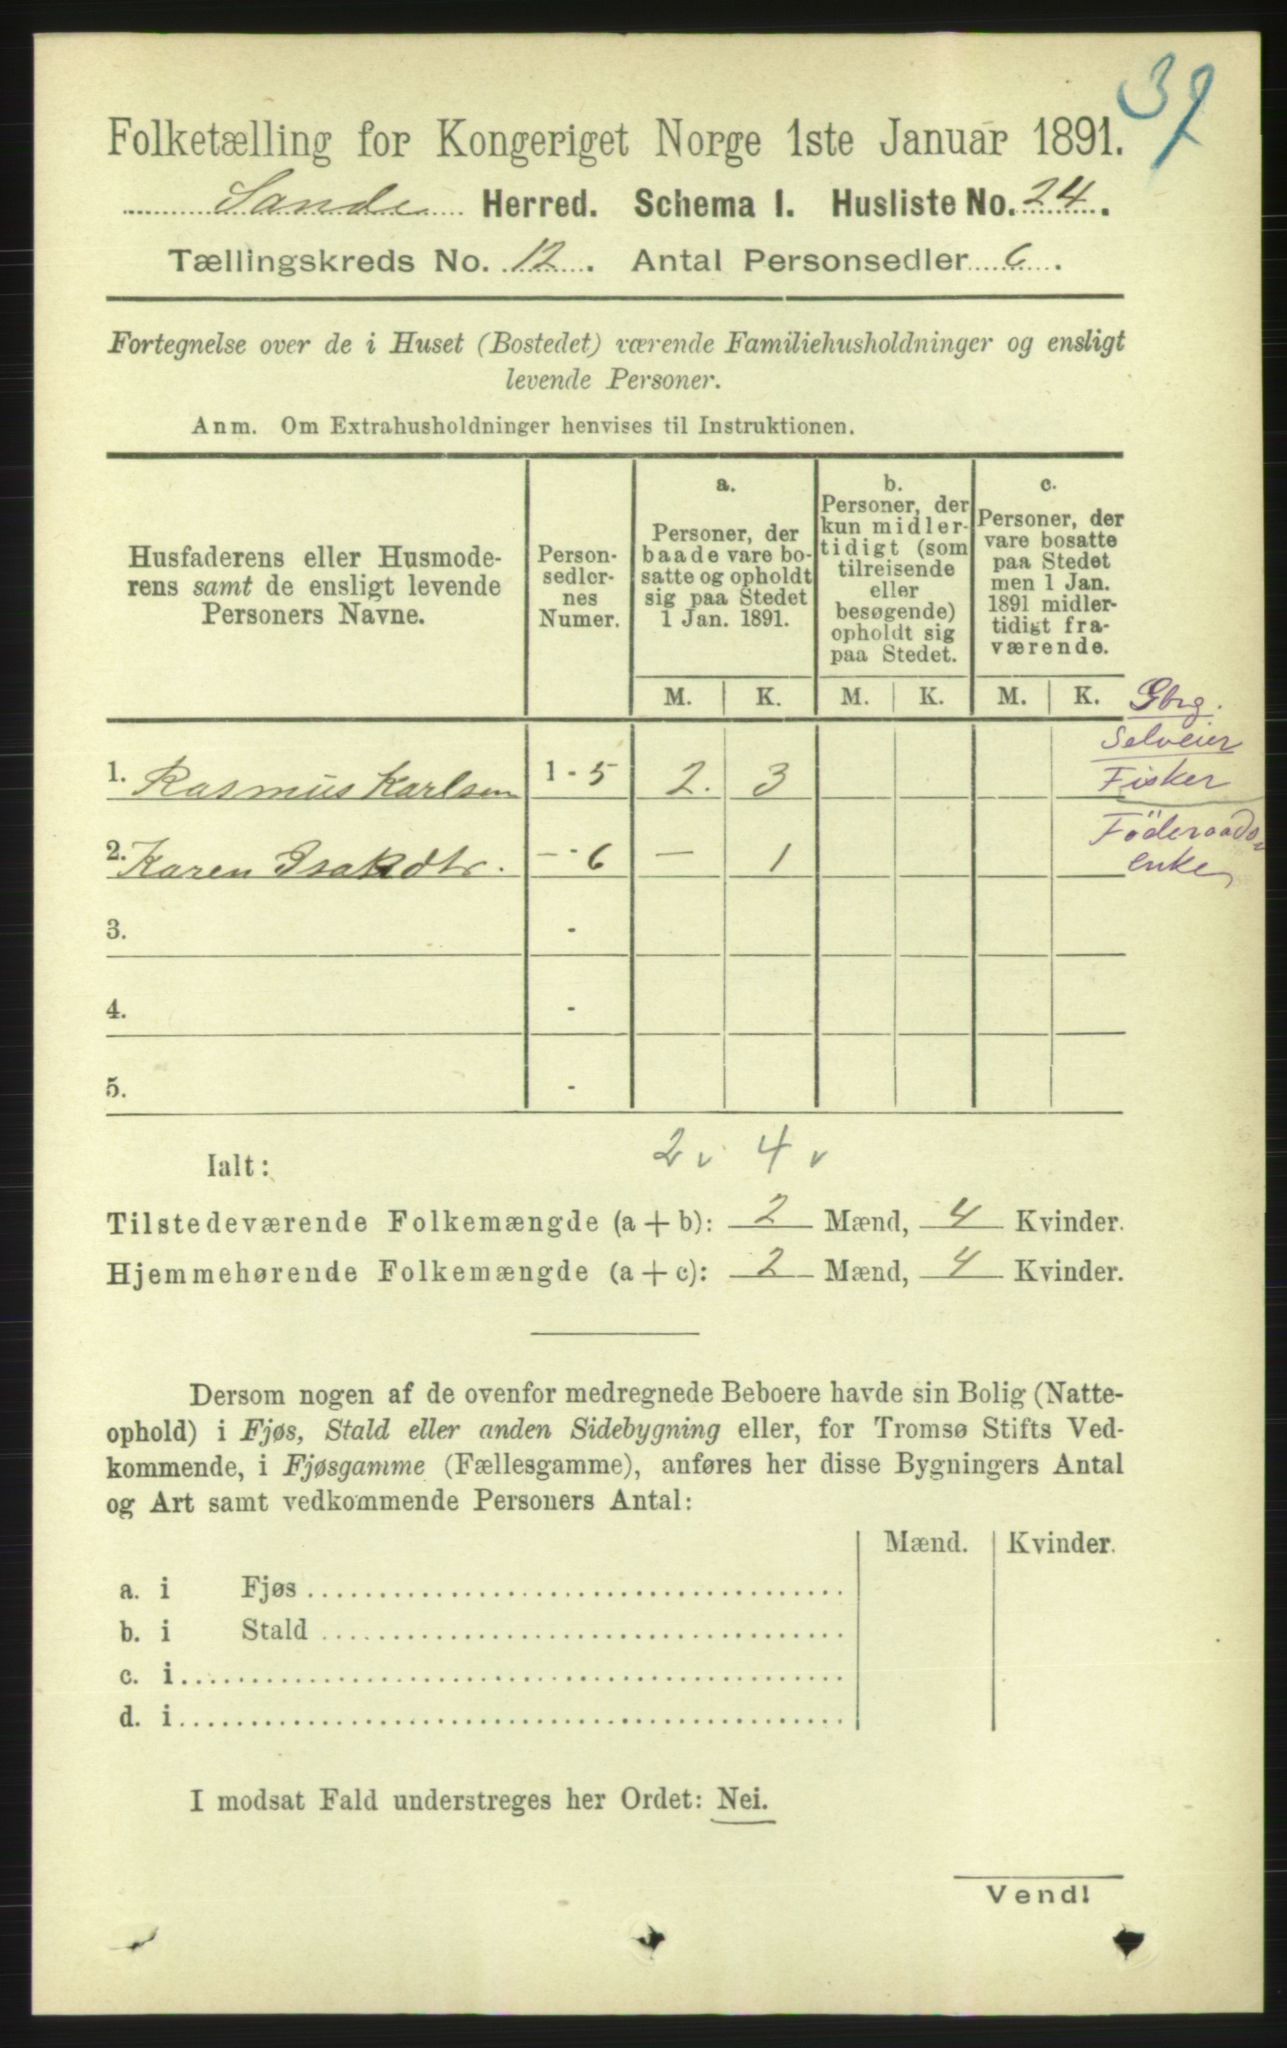 37
Folketælling for Kongeriget Norge 1ste Januar 1891.
Sande Herred. Schema I. Husliste No. 24.
Tællingskreds No. 12. Antal Personsedler 6.
Fortegnelse over de i Huset (Bostedet) værende Familiehusholdninger og ensligt
levende Personer.
Anm. Om Extrahusholdninger henvises til Instruktionen.
Husfaderens eller Husmode-
rens samt de ensligt levende
Personers Navne.
Person-
sedler-
nes
Numer.
a.
Personer, der
baade vare bo-
satte og opholdt
sig paa Stedet
1 Jan. 1891.
b.
Personer, der
kun midler-
tidigt (som
tilreisende
eller
besøgende)
opholdt sig
paa Stedet.
c.
Personer, der
vare bosatte
paa Stedet
men 1 Jan.
1891 midler-
tidigt fra-
værende.
M. K. M. K. M. K.
Gbrg.
Selveier
1. Rasmus Karlsen 1 - 5 2. 3 Fisker
Föderaads
2. Karen Isakdtr. - - 6 - 1 enke
3. -
4. -
5. -
Ialt: 2 v 4 v
Tilstedeværende Folkemængde (a + b): 2 Mænd, 4 Kvinder.
Hjemmehørende Folkemængde (a + c): 2 Mænd, 4 Kvinder.
Dersom nogen af de ovenfor medregnede Beboere havde sin Bolig (Natte-
ophold) i Fjøs, Stald eller anden Sidebygning eller, for Tromsø Stifts Ved-
kommende, i Fjøsgamme (Fællesgamme), anføres her disse Bygningers Antal
og Art samt vedkommende Personers Antal:
Mænd. Kvinder.
a. i Fjøs
b. i Stald
c. i
d. i
I modsat Fald understreges her Ordet: Nei.
Vend!